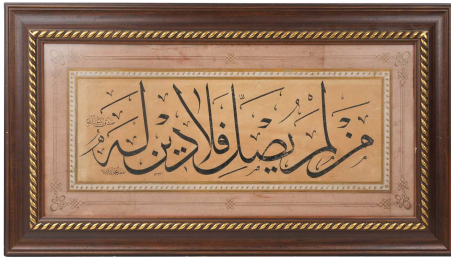 من لم يصل فلا دين له